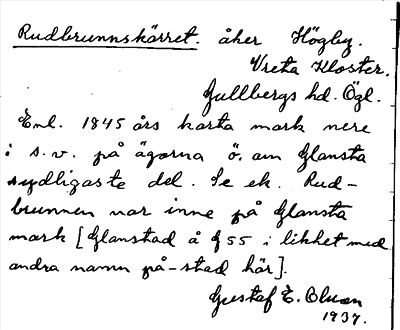 Rudbrunnskärret. åker Högby.
Vreta Kloster.
Gullbergs hd. Ögl.
Enl. 1845 års karta mark nere
i s.v. på ägorna ö. om Glansta
sydligaste del. Se ek. Rud-
brunnen var inne på Glansta
mark [Glanstad å g 55 i likhet med
andra namn på -stad här].
Gustaf E. Olsson
1937.